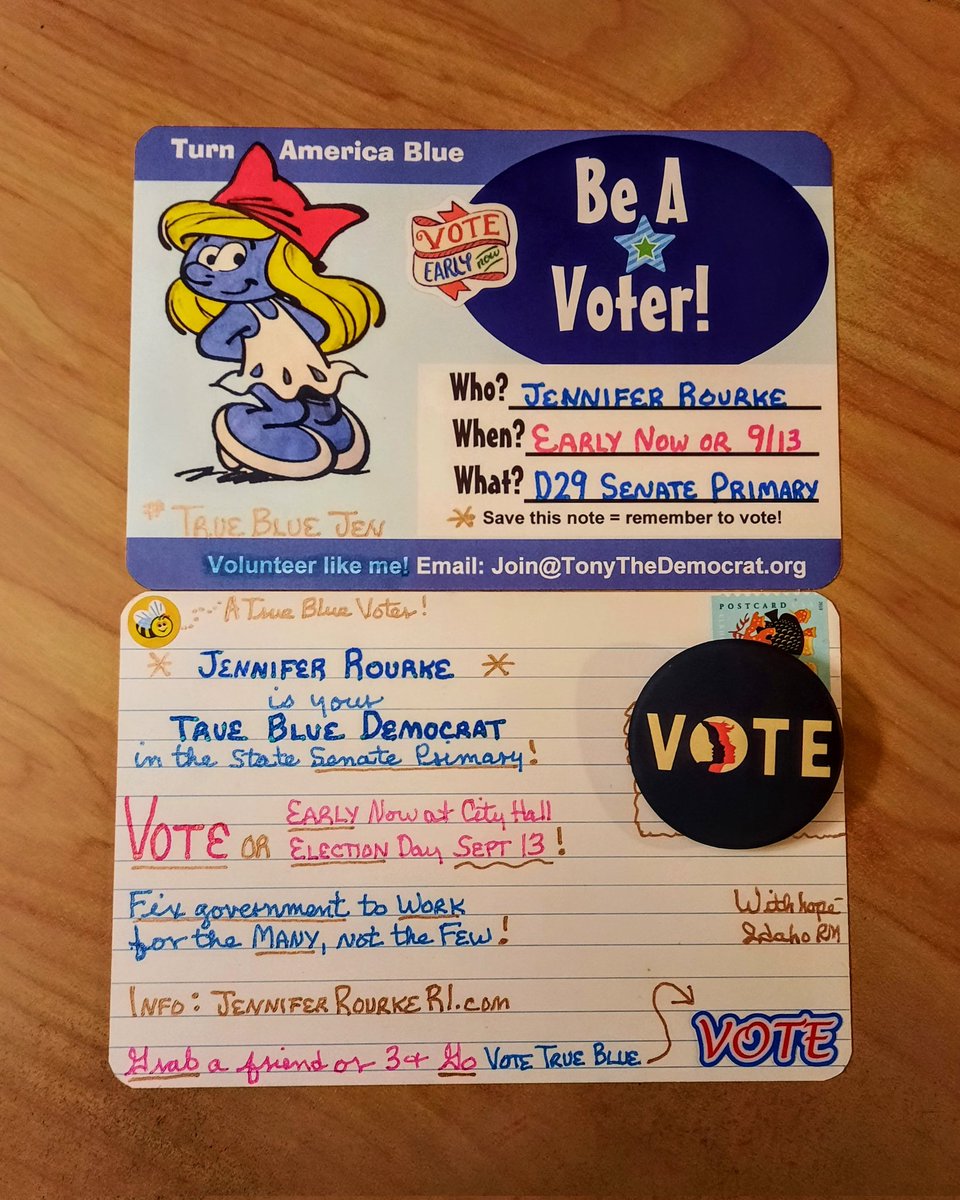 Turn America Blue
Be A
Voter!
VOTE
EARLY now
Who? JENNIFER ROURKE
When? EARLY NOW OR 9/13
What? D29 SENATE PRIMARY
Save this note = remember to vote!
# TRUE BLUE JEN
Volunteer like me! Email: Join@TonyTheDemocrat.org
A True Blue Voter!
POSTCARD
JENNIFER ROURKE
is your
TRUE BLUE DEMOCRAT
in the State Senate Primary!
VOTE
VOTE OR EARLY Now at City Hall
ELECTION Day SEPT 13!
Fix government to WORK
for the MANY, not the FEW!
With hope
Idaho RM
INFO: JENNIFERROURKERI.com
Grab a friend or 3 + Go VOTE TRUE BLUE
VOTE